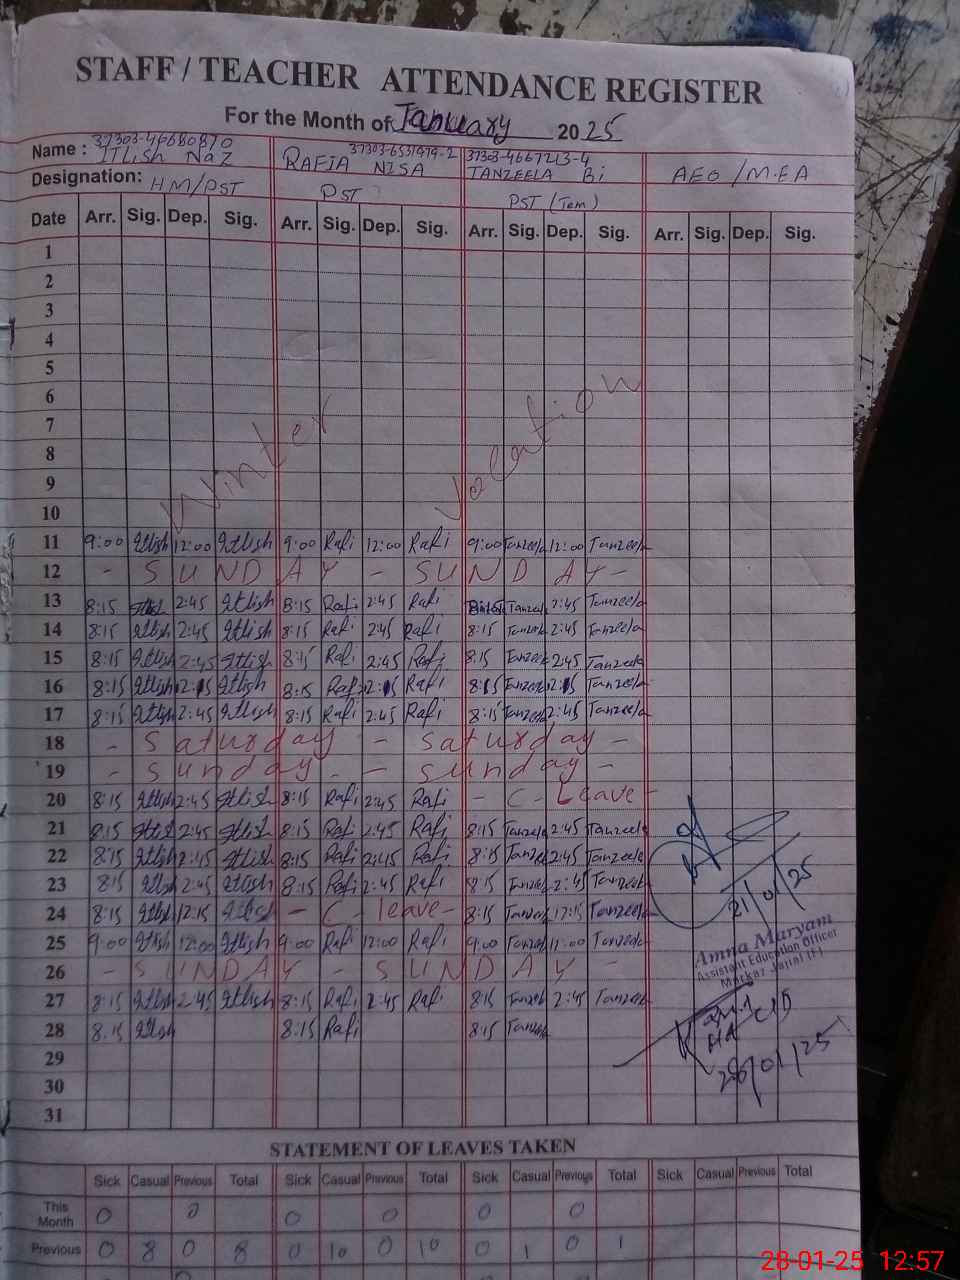 STAFF / TEACHER ATTENDANCE REGISTER
For the Month of January 2025
Name : 37303-46680870 ITLish NaZ 37303-6531474-2 RAFIA NISA 37303-4667213-4 TANZEELA Bi AEO / M.EA
Designation: HM/PST PST PST (Tem)
Date Arr. Sig. Dep. Sig. Arr. Sig. Dep. Sig. Arr. Sig. Dep. Sig. Arr. Sig. Dep. Sig.
1
2
3
4
5
6
7
8
9
10
Winter Vacation
11 9:00 Itlish 12:00 Itlish 9:00 Rafi 12:00 Rafi 9:00 Tanzeela 12:00 Tanzeela
12 - SUNDAY - SUNDAY -
13 8:15 2:45 Itlish 8:15 Rafi 2:45 Rafi Tanzeela 2:45 Tanzeela
14 8:15 Itlish 2:45 Itlish 8:15 Rafi 2:45 Rafi 8:15 Tanzeela 2:45 Tanzeela
15 8:15 Itlish 2:45 Itlish 8:15 Rafi 2:45 Rafi 8:15 Tanzeela 2:45 Tanzeela
16 8:15 Itlish 2:15 Itlish 8:15 Rafi 2:15 Rafi 8:15 Tanzeela 2:15 Tanzeela
17 8:15 Itlish 2:45 Itlish 8:15 Rafi 2:45 Rafi 8:15 Tanzeela 2:45 Tanzeela
18 - Saturday - Saturday -
19 - Sunday - - Sunday -
20 8:15 Itlish 2:45 Itlish 8:15 Rafi 2:45 Rafi - C - Leave -
21 8:15 Itlish 2:45 Itlish 8:15 Rafi 2:45 Rafi 8:15 Tanzeela 2:45 Tanzeela
22 8:15 Itlish 2:45 Itlish 8:15 Rafi 2:45 Rafi 8:15 Tanzeela 2:45 Tanzeela
23 8:15 Itlish 2:45 Itlish 8:15 Rafi 2:45 Rafi 8:15 Tanzeela 2:45 Tanzeela
24 8:15 Itlish 12:15 Itlish - C - leave - 8:15 Tanzeela 12:15 Tanzeela
21/01/25
25 9:00 Itlish 12:00 Itlish 9:00 Rafi 12:00 Rafi 9:00 Tanzeela 12:00 Tanzeela
Amna Maryam
Assistant Education Officer
Markaz Jajial (F)
26 - SUNDAY - SUNDAY -
27 8:15 Itlish 2:45 Itlish 8:15 Rafi 2:45 Rafi 8:15 Tanzeela 2:45 Tanzeela
28 8:15 Itlish 8:15 Rafi 8:15 Tanzeela
28/01/25
29
30
31
STATEMENT OF LEAVES TAKEN
Sick Casual Previous Total Sick Casual Previous Total Sick Casual Previous Total Sick Casual Previous Total
This Month 0 0 0 0 0 0
Previous 0 8 0 8 0 10 0 10 0 1 0 1
28-01-25 12:57